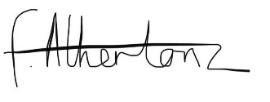 F. Athertonz